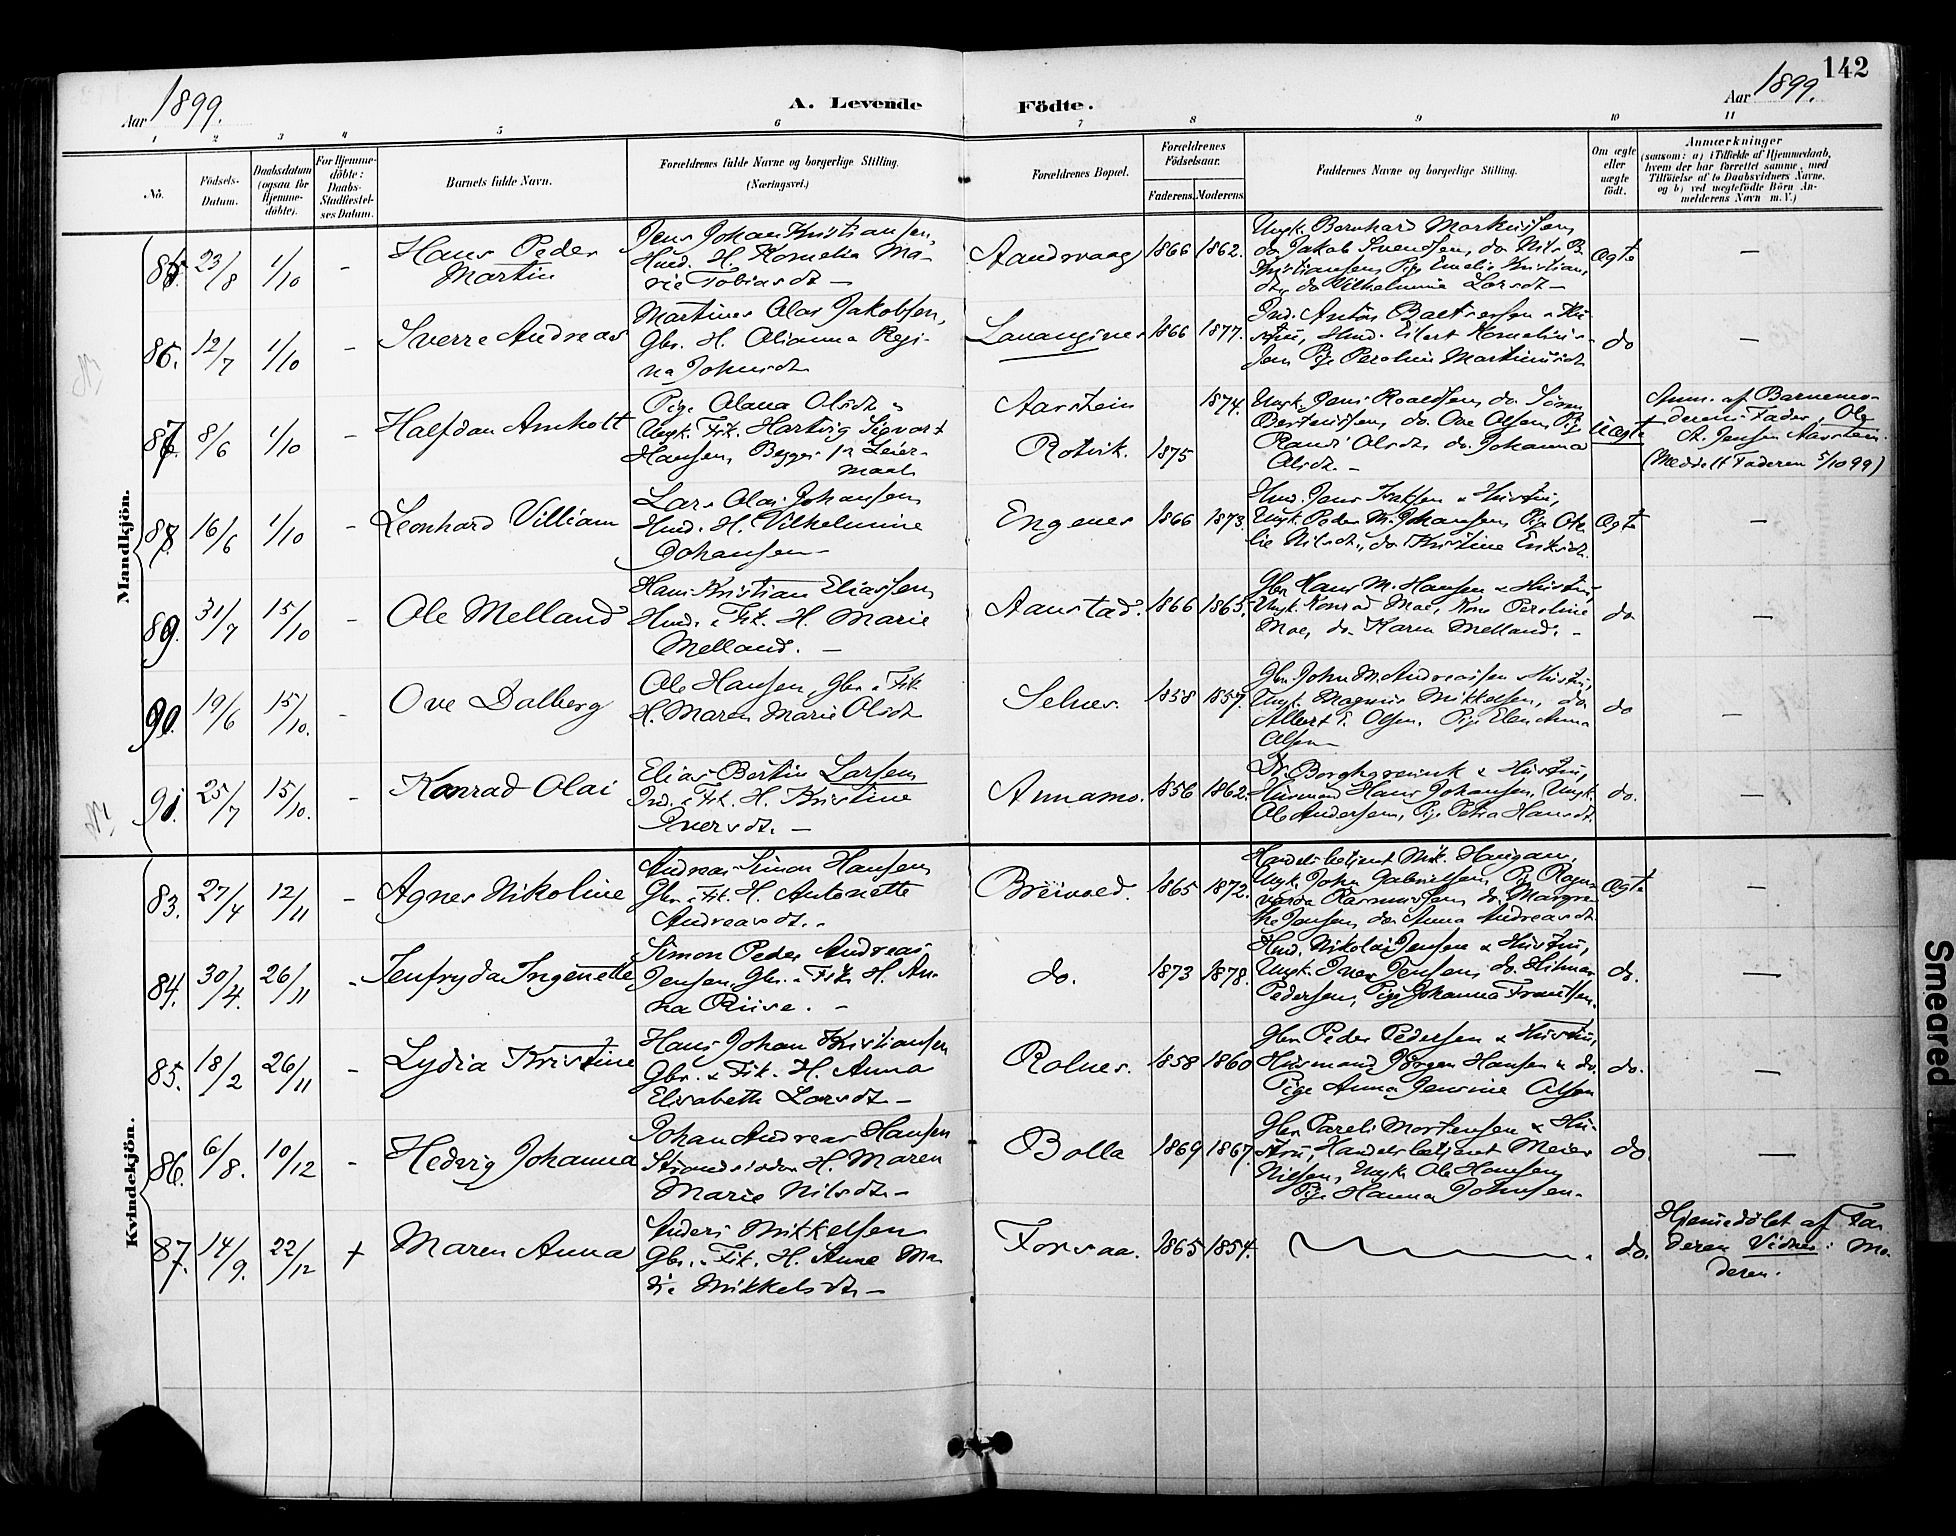 142
Aar 1899.
A. Levende Födte.
Aar 1899.
1 2 3 4 5 6 7 8 9 10 11
No.
Födsels-
Datum.
Daabsdatum
(ogsaa for
Hjemme-
döbte).
For Hjemme-
döbte:
Daabs-
Stadfæstel-
ses Datum.
Barnets fulde Navn.
Forældrenes fulde Navne og borgerlige Stilling.
(Næringsvei.)
Forældrenes Bopæl.
Forældrenes
Födselsaar.
Faderens. Moderens.
Faddernes Navne og borgerlige Stilling.
Om ægte
eller
uægte
födt.
Anmærkninger
(saasom: a) i Tilfælde af Hjemmedaab,
hvem der har forrettet samme, med
Tilföielse af to Daabsvidners Navne,
og b) ved uægtefödte Börn An-
melderens Navn m. V.)
Mandkjön.
85. 23/8 1/10 - Hans Peder
Martin
Jens Johan Kristiansen,
Hmd. H. Kornelia Ma-
rie Tobiasdt. -
Aandsvaag 1866 1862.
Ungk. Bernhard Markussen,
do Jakob Svendsen, do Nils B.
Kristiansen, Pige Emelie Kristians
dt., do Vilhelmine Larsdt -
Ægte -
86. 12/7 1/10 - Sverre Andreas
Martines Olai Jakobsen,
Gbr. H. Olianna Regi-
na Johnsdt.
Lavangnes 1866 1877.
Ind. Antón
Hmd. Eilert Kornelius-
sen Pige Peroline Martinusdt
do -
87. 8/6 1/10 - Halfdan Arnholt
Pige Olana Olsdt. &
Ungk. Fik. Hartvig Sigvart
Hansen, Begges 1ste Leier-
maal
Aarstein
Rotvik.
1875 1874.
Ungk. Jens Roaldsen, do Sören
Berteussen, do Ove Olsen, Pig
Randi Olsdt. do Johanna
Olsdt. -
Uægte
Anm. af Barnemo-
derens Fader, Ole
A. Jensen Aarstein.
(Meddelt Faderen 5/10 99)
88. 16/6 1/10 - Leonhard Villiam
Lars Olai Johansen
Hmd. H. Vilhelmine
Johansen -
Engenes 1866 1873.
Hmd. Jens Isaksen & Hustru,
Ungk. Peder M. Johansen, Pige Ote
lie Nilsdt., do Kristine Eriksdt.
Ægte -
89. 31/7 15/10 - Ole Melland
Hans Kristian Eliassen,
Hmd. & Fik. H. Marie
Melland. -
Aanstad. 1866 1865.
Gbr. Hans M. Hansen & Hustru,
Ungk. Konrad Moe, Kone Oeroline
Moe, do Karen Melland. -
do -
90. 19/6 15/10. - Ove Dalberg
Ole Hansen, Gbr. & Fik
H. Maren Marie Olsdt
Selnes. 1858 1859.
Gbr. John M. Andreassen & Hustru,
Ungk. Magnus Mikkelsen, do
Albert E. Olsen, Pige Elen Anna
Olsen
do -
91. 25/7 15/10. - Konrad Olai
Elias Bertin Larsen
Ind. & Fik. H. Kristine
Iversdt. -
Annamo. 1856 1862.
Dr. Borchgrevink & Hustru,
Husmand Hans Johansen, Ungk.
Ole Andersen, Pige Petra Hansdt
do. -
Kvindekjön.
83. 27/4 12/11 - Agnes Nikoline
Andreas Simon Hansen
Gbr. & Fik. H. Antonette
Andreasdt. -
Breivold. 1865 1872.
Handelsbetjent Nik. Haugan,
Ungk. John Gabrielsen, Pig Ragn-
varda Rasmussen, do Margre-
the Jensen, do Anna Andreasdt
Ægte -
84. 30/4. 26/11 - Jenfryda Ingenette
Simon Peder Andreas
Jensen, Gbr. & Fik. H. An-
na Riise. -
do. 1873 1878.
Hmd. Nikolai Jensen & Hustru,
Ungk. Iver Jensen, do. Hilmar
Pedersen, Pige Johanna Frantsen.
do. -
85. 18/2 26/11 - Lydia Kristine
Hans Johan Kristiansen
Gbr. & Fik. H. Anna
Elisabeth Larsdt. -
Rolnes. 1858 1860
Gbr. Peder Pedersen & Hustru,
Husmand Jörgen Hansen & do.
Pige Anna Jensine Olsen
do. -
86. 6/8. 10/12 - Hedvig Johanna
Johan Andreas Hansen
Strandsidder H. Maren
Marie Nilsdt. -
Bolla 1869 1867.
Gbr. Pareli Mortensen & Hu-
stru, Handelsbetjent Meier
Nielsen, Ungk. Ole Hansen
Pige Hanna Johnsen.
do. -
87. 14/9. 22/12 + Maren Anna
Anders Mikkelsen
Gbr. & Fik. H. Anne Ma-
rie Mikkelsdt. -
Forsaa. 1865 1854.
do.
Hjemmedöbt af Fa-
deren Vidner: Mo-
deren.
Smeared